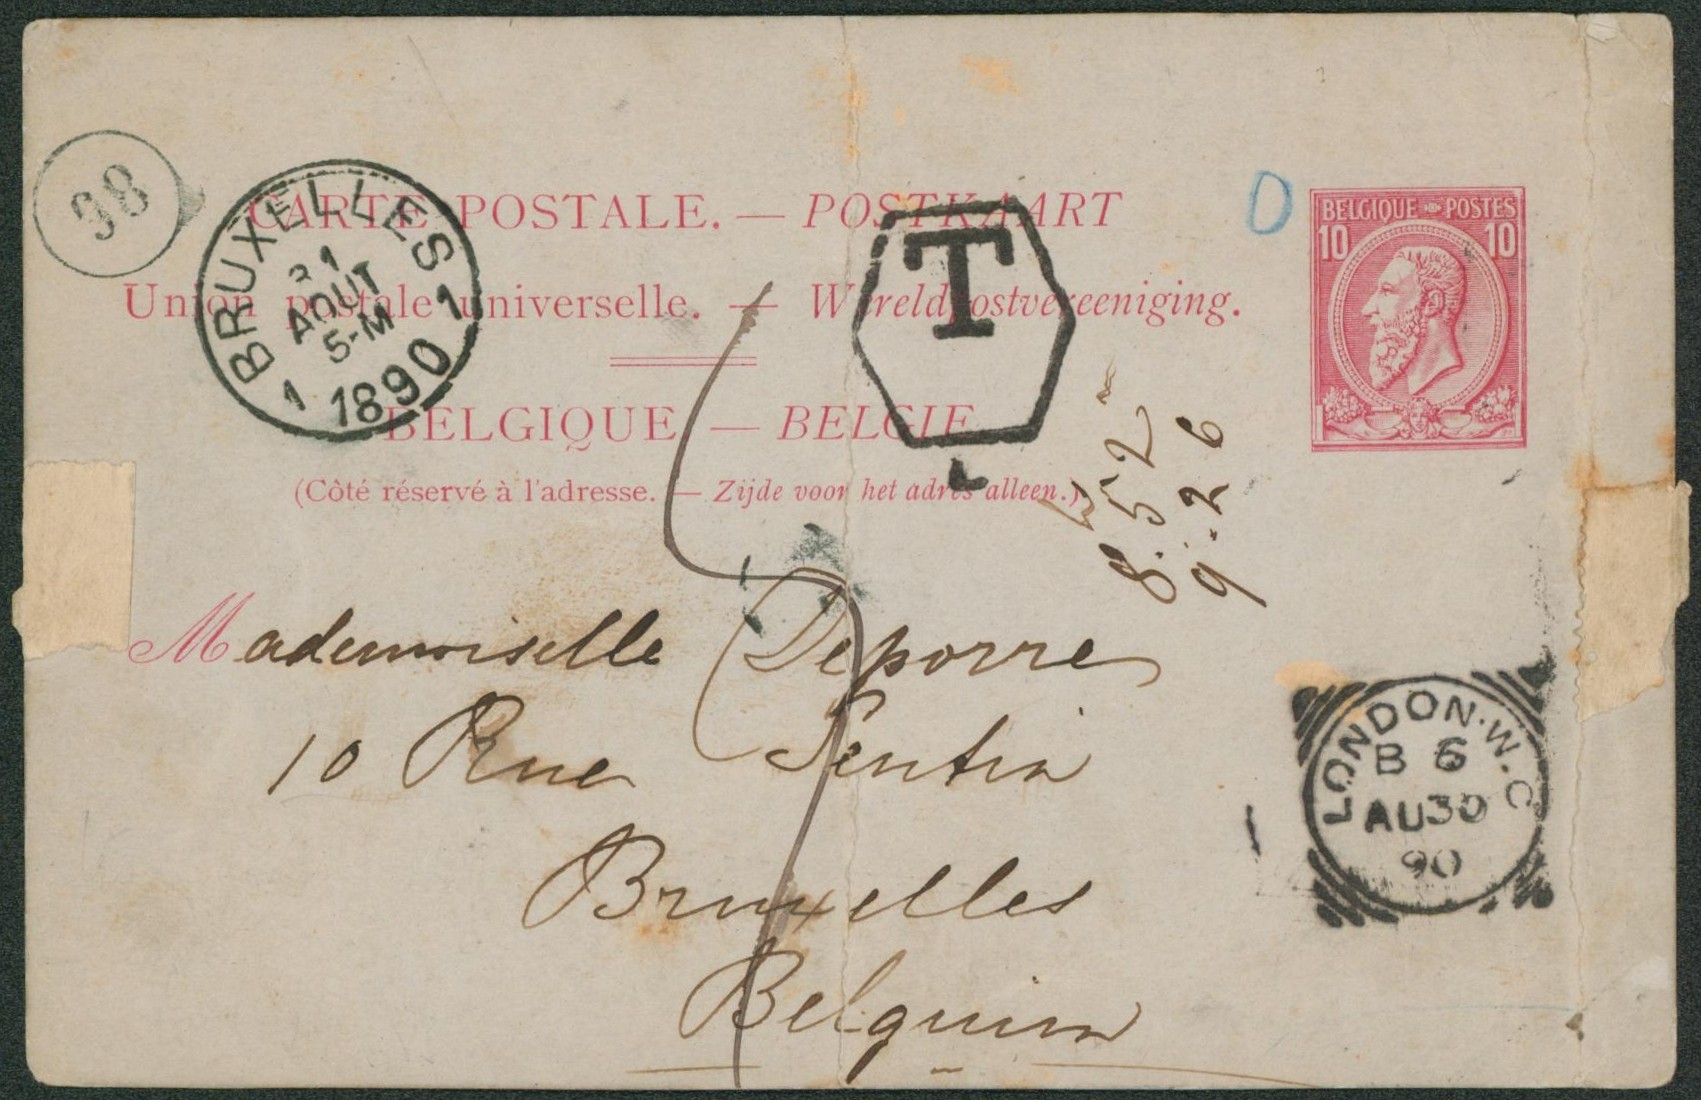 38
BRUXELLES
31
AOUT
5-M
1890
1 1
CARTE POSTALE. — POSTKAART
Union postale universelle. — Wereldpostvereeniging.
BELGIQUE — BELGIE
(Côté réservé à l'adresse. — Zijde voor het adres alleen.)
T
D
BELGIQUE POSTES
10 10
8.52
9.26
5
Mademoiselle Deporre
10 Rue
Bruxelles
Belguim
LONDON·W.C
B 6
AU30
90